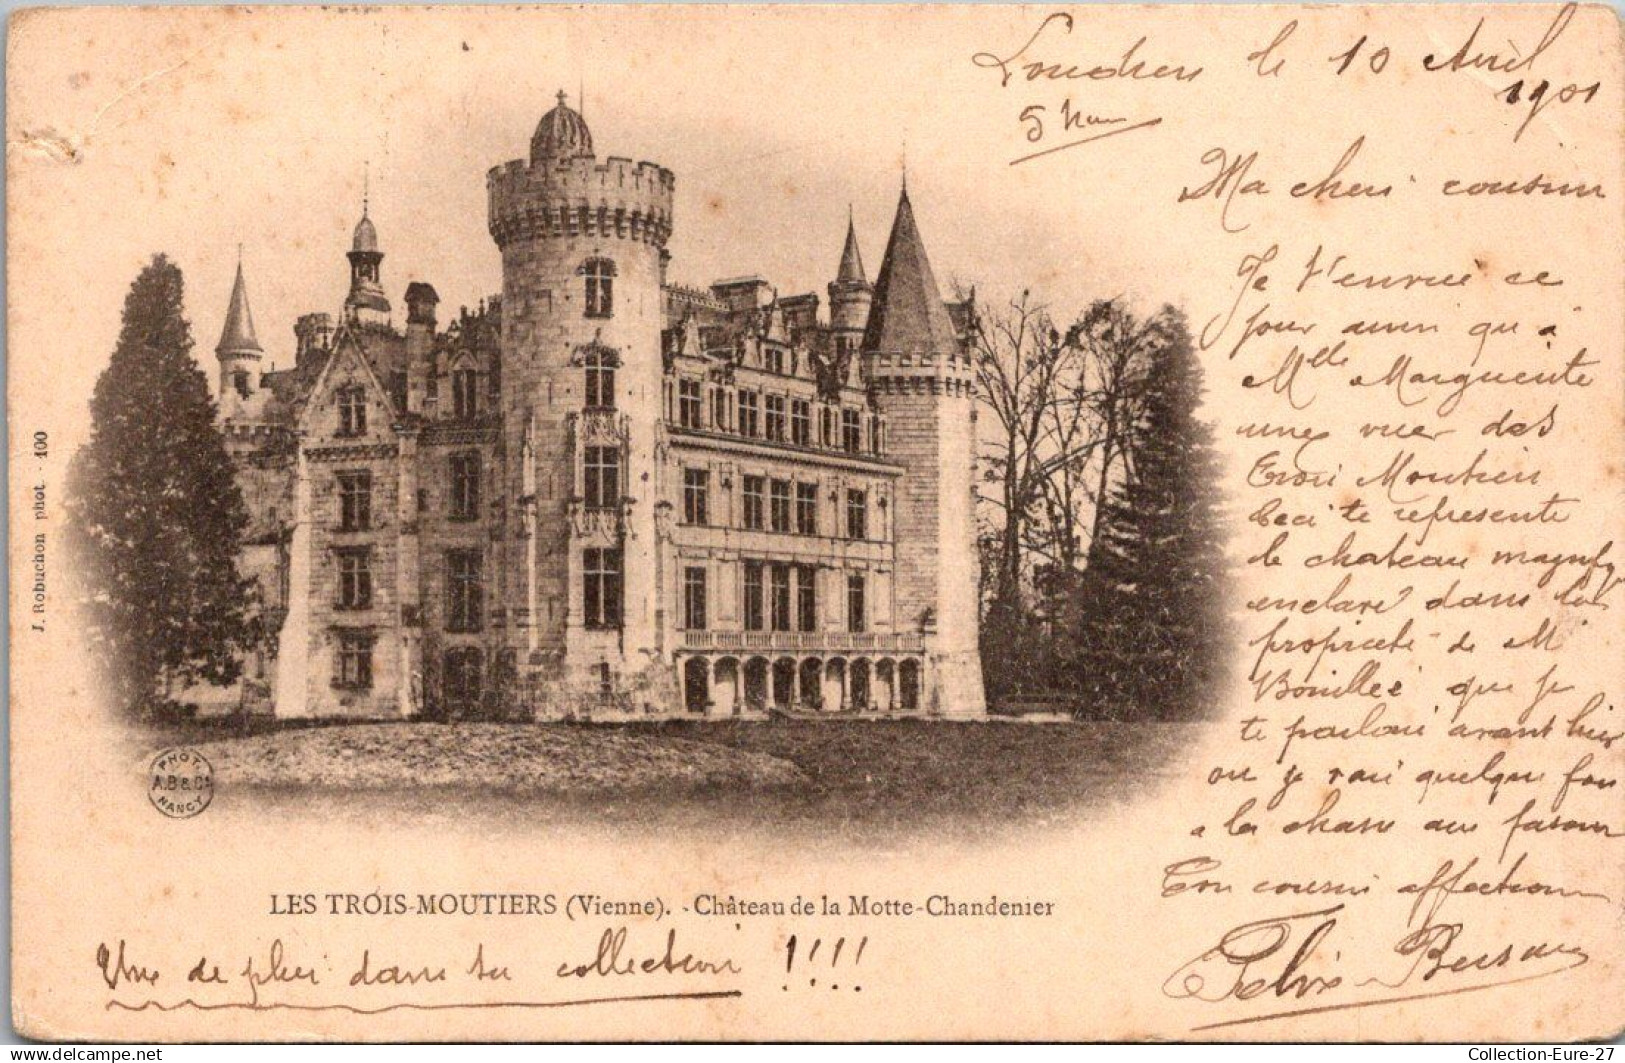 Loudun le 10 Avril
1901
5 heures
Ma chère cousine
Je t'envoie ce
jour ainsi qu'à
Mlle Marguerite
une vue des
Trois Moutiers
Ceci te représente
le chateau magnifique
enclavé dans la
propriété de M
Bouillée que je
te parlais avant hier
ou je vais quelque fois
a la chasse aux faisans
Ton cousin affectionné
Félix
LES TROIS-MOUTIERS (Vienne). - Château de la Motte-Chandenier
Une de plus dans ta collection !!!!
J. Robuchon phot. - 100
PHOT.
A.B & Cie
NANCY
Collection-Eure-27